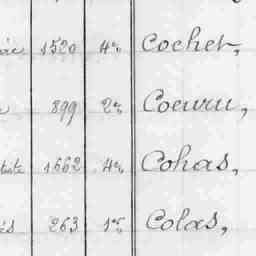 1520 4º Cochet,
899 2º Coewru,
1662 4º Cohas,
263 1º Colas,